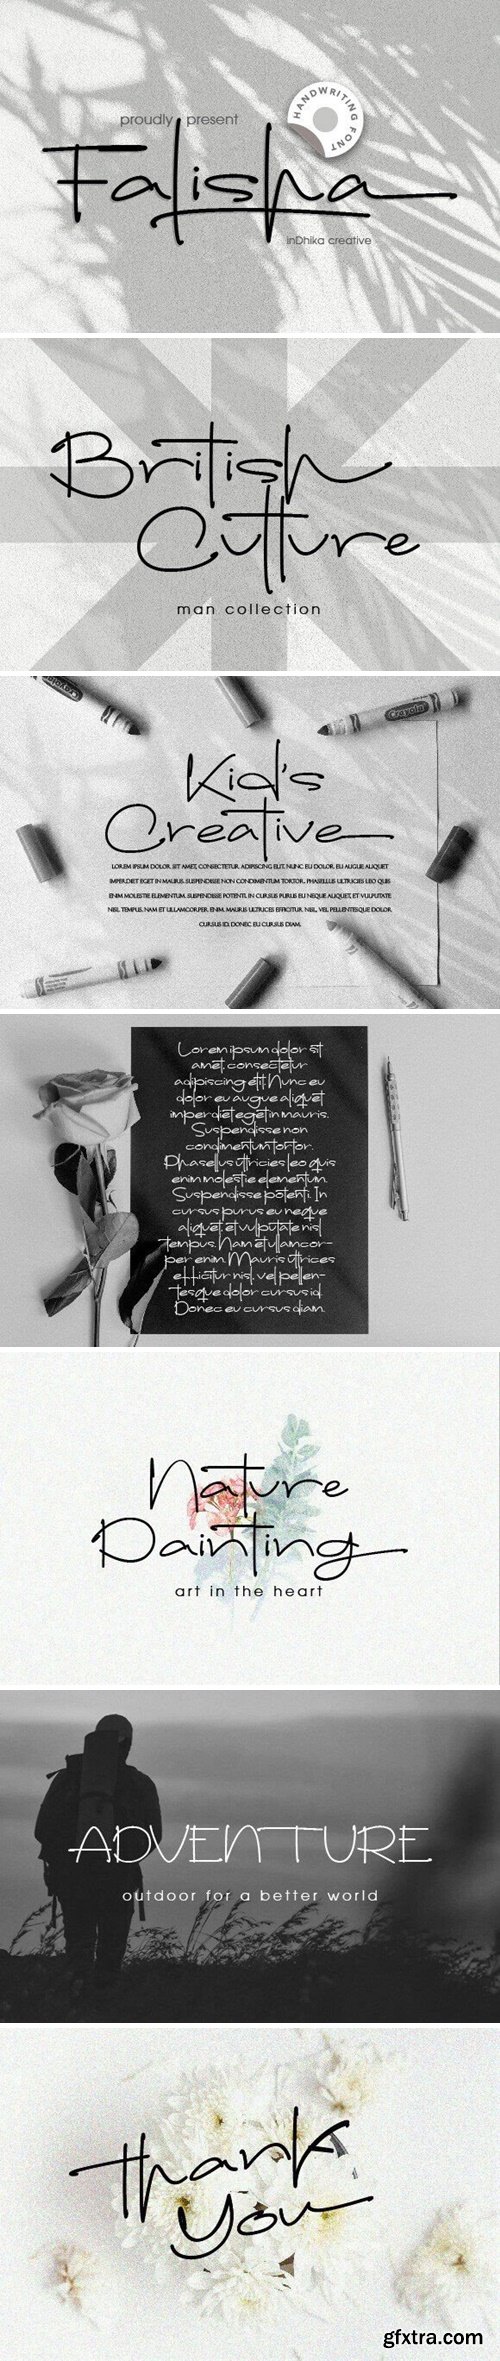 proudly present
HANDWRITING FONT
Falisha
inDhika creative
British
Culture
man collection
Crayola
Crayola
Kid's
Creative
LOREM IPSUM DOLOR SIT AMET, CONSECTETUR ADIPISCING ELIT. NUNC EU DOLOR EU AUGUE ALIQUET
IMPERDIET EGET IN MAURIS. SUSPENDISSE NON CONDIMENTUM TORTOR. PHASELLUS ULTRICIES LEO QUIS
ENIM MOLESTIE ELEMENTUM. SUSPENDISSE POTENTI. IN CURSUS PURUS EU NEQUE ALIQUET, ET VULPUTATE
NISL TEMPUS. NAM ET ULLAMCORPER ENIM. MAURIS ULTRICES EFFICITUR NISL, VEL PELLENTESQUE DOLOR
CURSUS ID. DONEC EU CURSUS DIAM.
Lorem ipsum dolor sit
amet, consectetur
adipiscing elit. Nunc eu
dolor eu augue aliquet
imperdiet eget in mauris.
Suspendisse non
condimentum tortor.
Phasellus ultricies leo quis
enim molestie elementum.
Suspendisse potenti. In
cursus purus eu neque
aliquet, et vulputate nisl
tempus. Nam et ullamcor-
per enim. Mauris ultrices
efficitur nisl, vel pellen-
tesque dolor cursus id.
Donec eu cursus diam.
Nature
Painting
art in the heart
ADVENTURE
outdoor for a better world
Thank
you
gfxtra.com